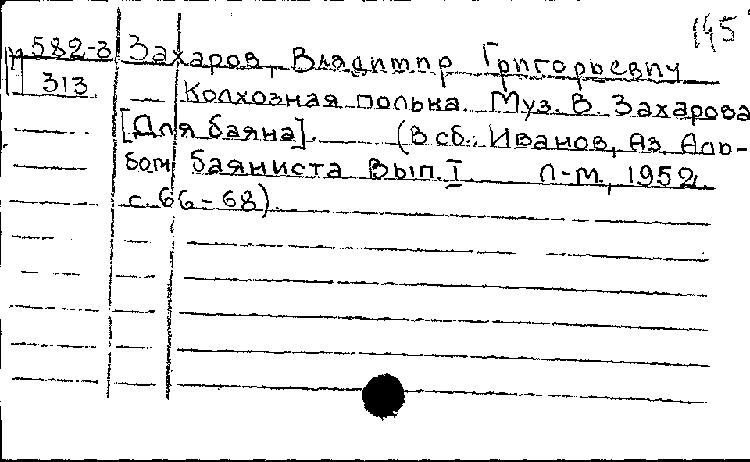 145
М 582-3 Захаров, Владимир Григорьевич
313 Колхозная полька. Муз. В. Захарова
[Для баяна]. (В сб.: Иванов, Аз. Аль-
бом баяниста Вып. I. Л-М., 1952
с. 66-68)